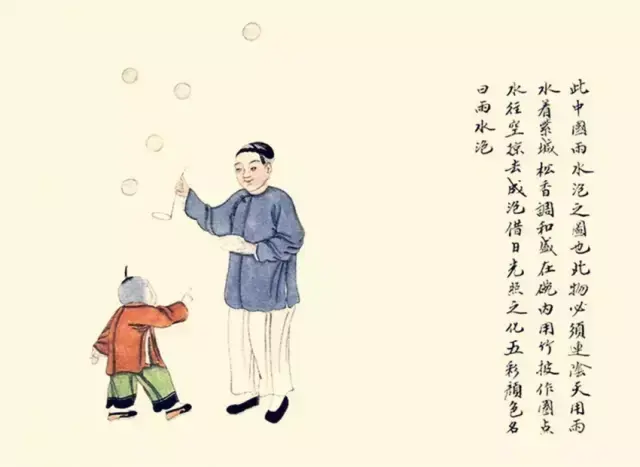 此中國雨水泡之圖也此物必須連陰天用雨
水着紫城松香調和盛在碗內用竹披作圈点
水往空掠去成泡借日光照之化五彩顏色名
曰雨水泡